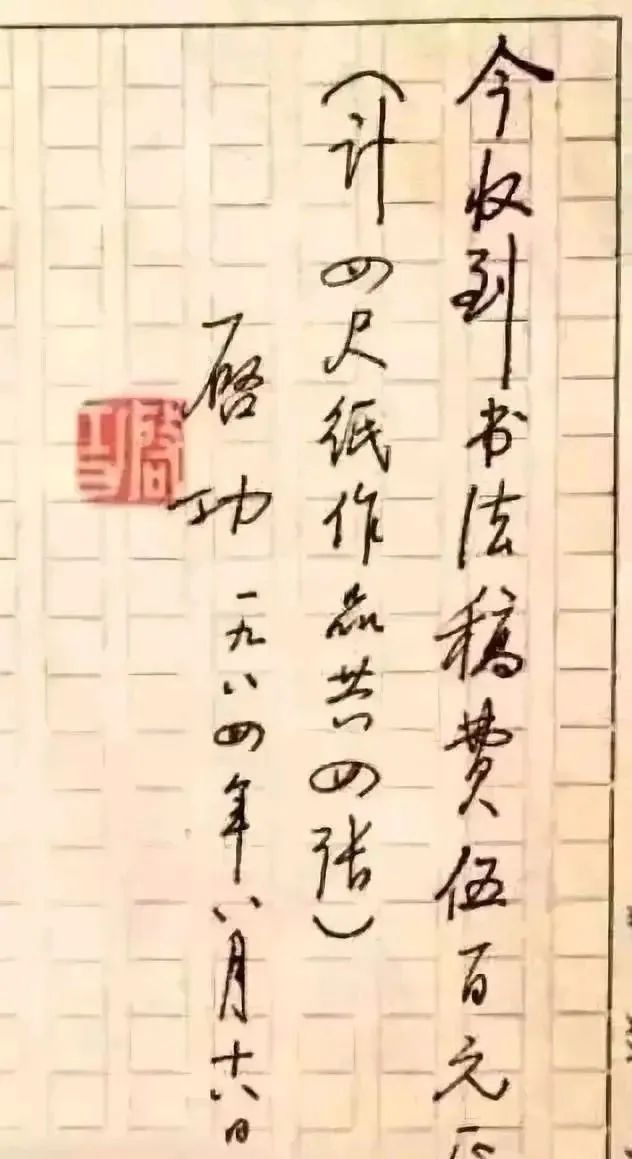 今收到书法稿费伍百元
（计四尺纸作品共四张）
启功
一九八四年八月十六日
启功